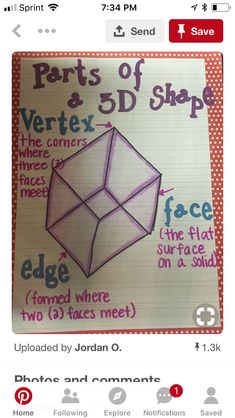 Sprint
7:34 PM
Send
Save
Parts of
a 3D Shape
Vertex
the corners
where
three (3)
faces
meet
face
(the flat
surface
on a solid)
edge
(formed where
two (2) faces meet)
Uploaded by Jordan O.
1.3k
Photos and comments
1
Home
Following
Explore
Notifications
Saved